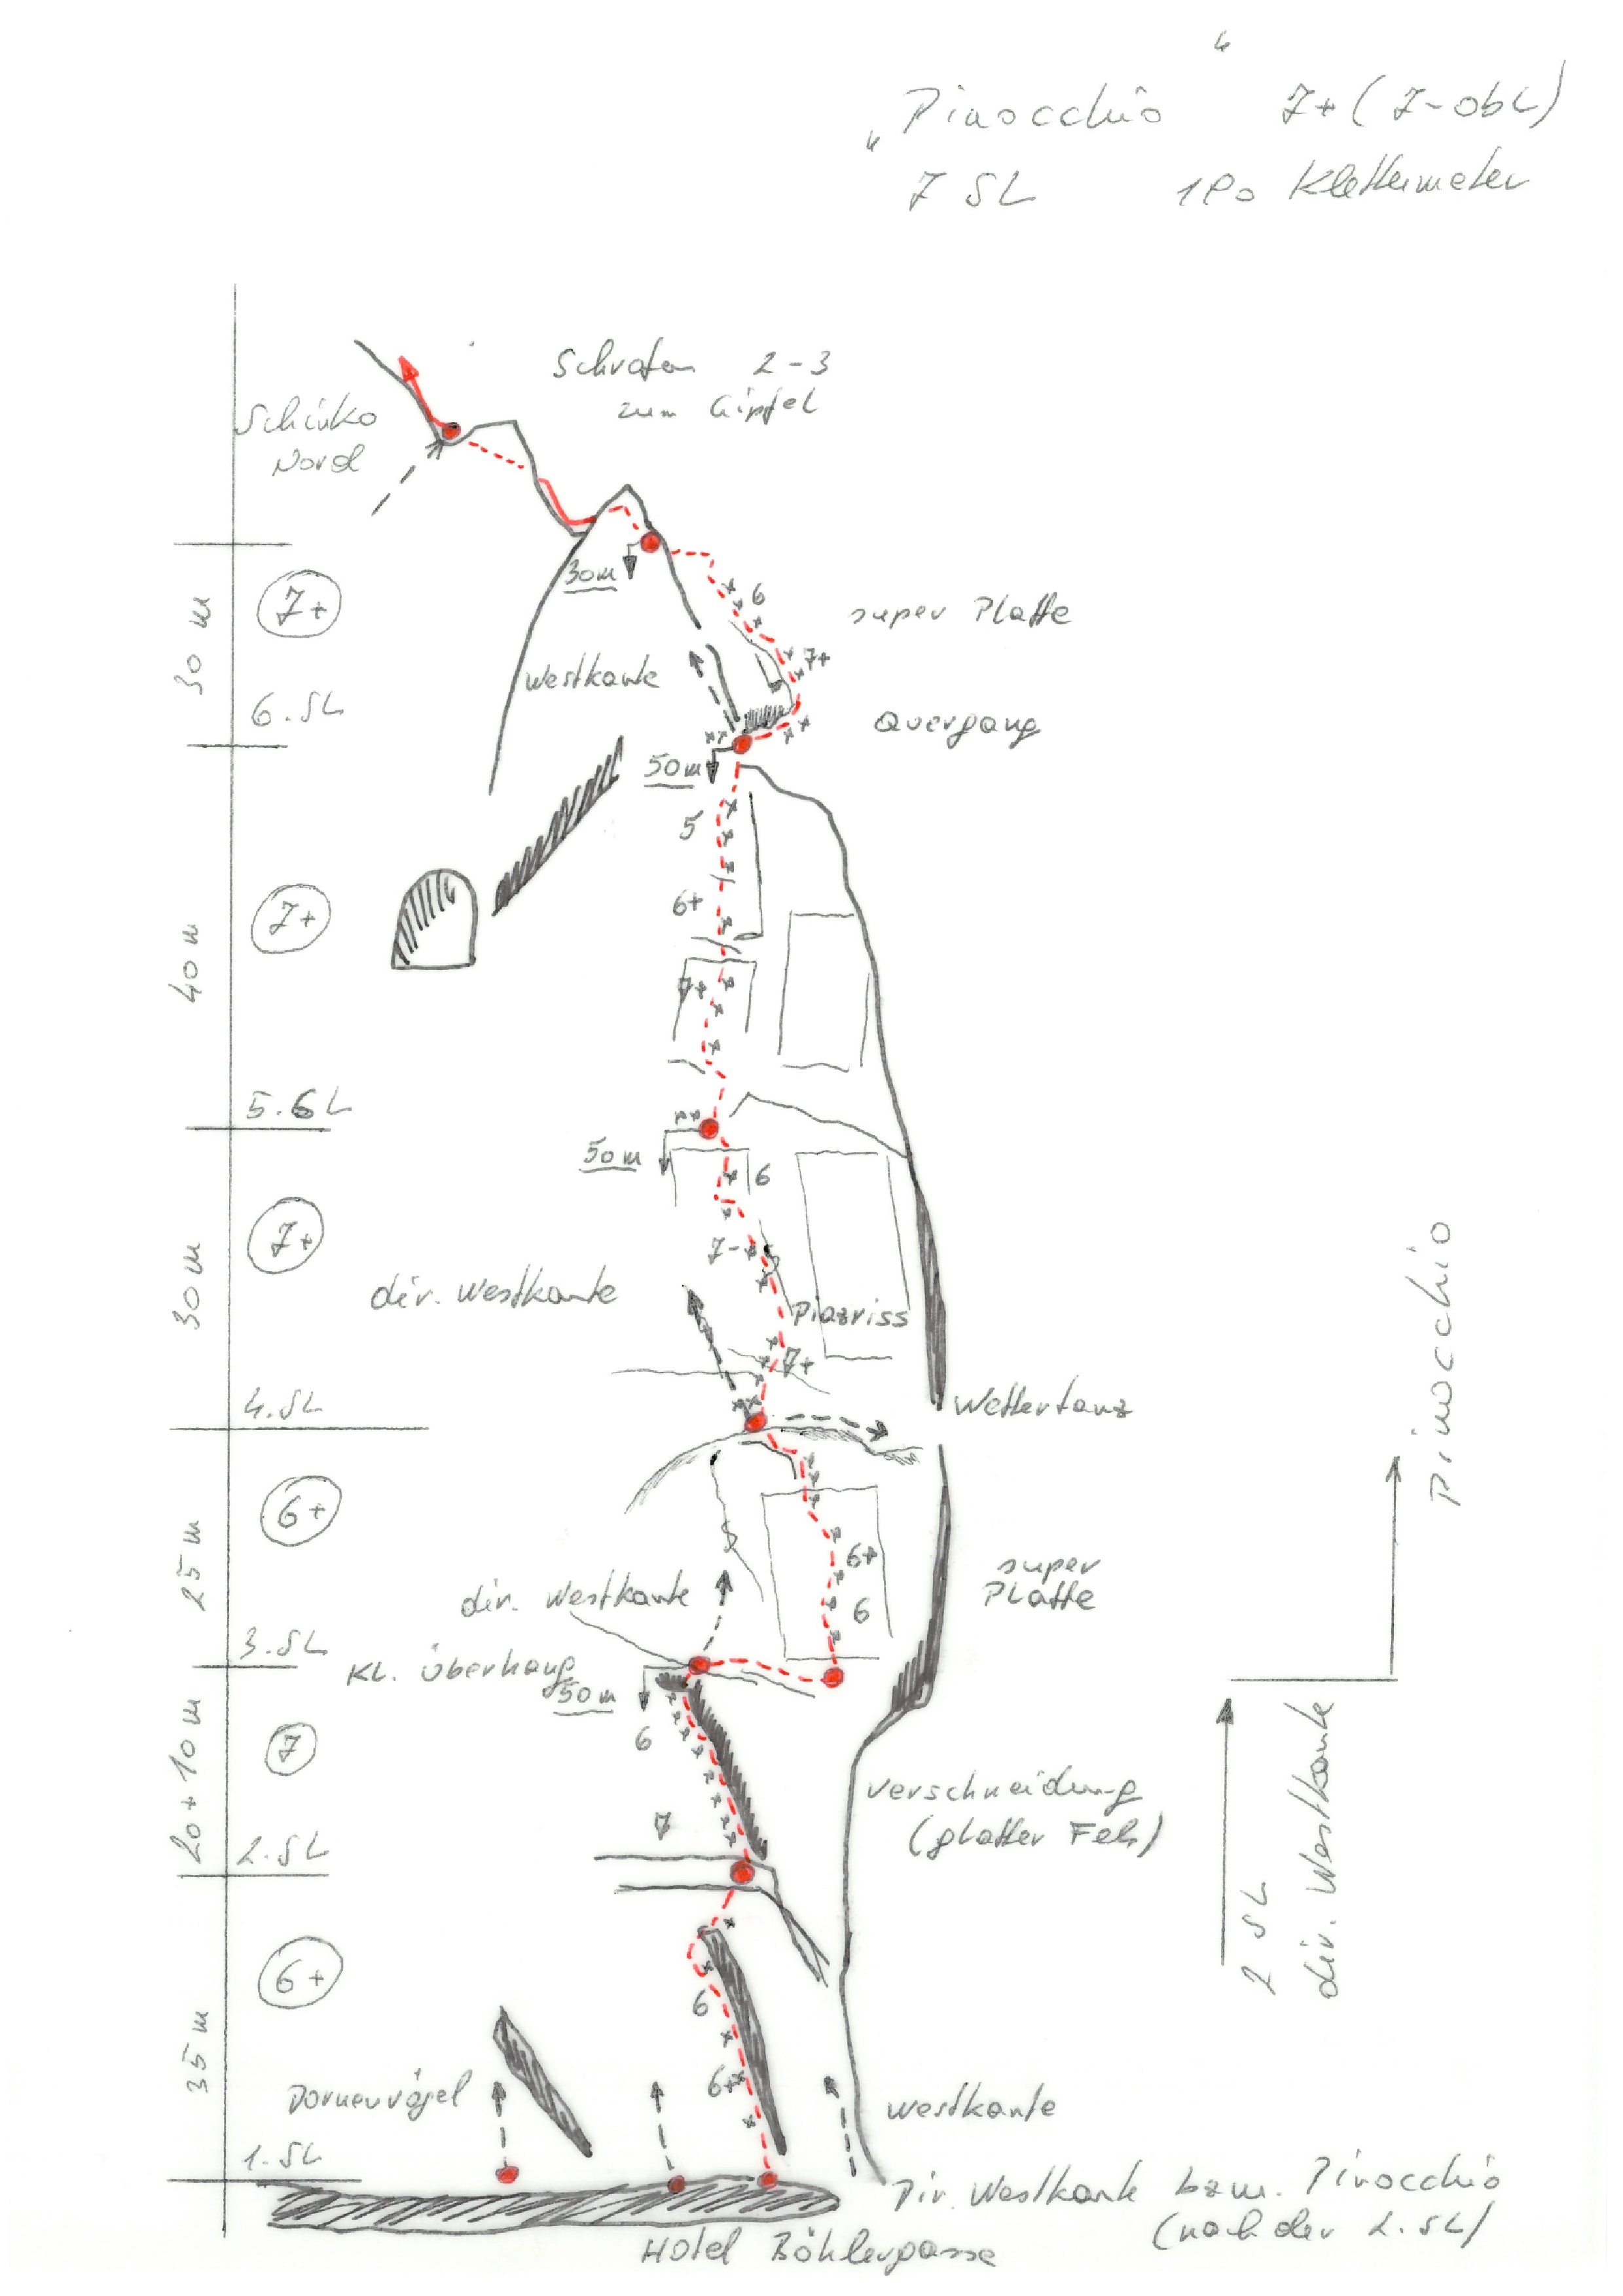 "Pinocchio" 7+ (7- obl)
7 SL 180 Klettermeter
Schrofen 2-3
zum Gipfel
Schinko
Nord
30m
7+
30 m
6
super Platte
7+
Westkante
6.SL
Quergang
50m
5
7+
6+
40 m
7+
5.SL
50m
6
7+
7-
30m
dir. Westkante
Piazriss
7+
4.SL
Wettertanz
Pinocchio
6+
25 m
6+
super
Platte
6
dir. Westkante
3.SL
Kl. Überhang
50m
6
7
20+10 m
Verschneidung
(glatter Fels)
7
2.SL
2 SL
dir. Westkante
6+
6
35 m
6+
Dornenvögel
Westkante
1.SL
Dir. Westkante bzw. Pinocchio
(nach der 2.SL)
Hotel Böhlergasse